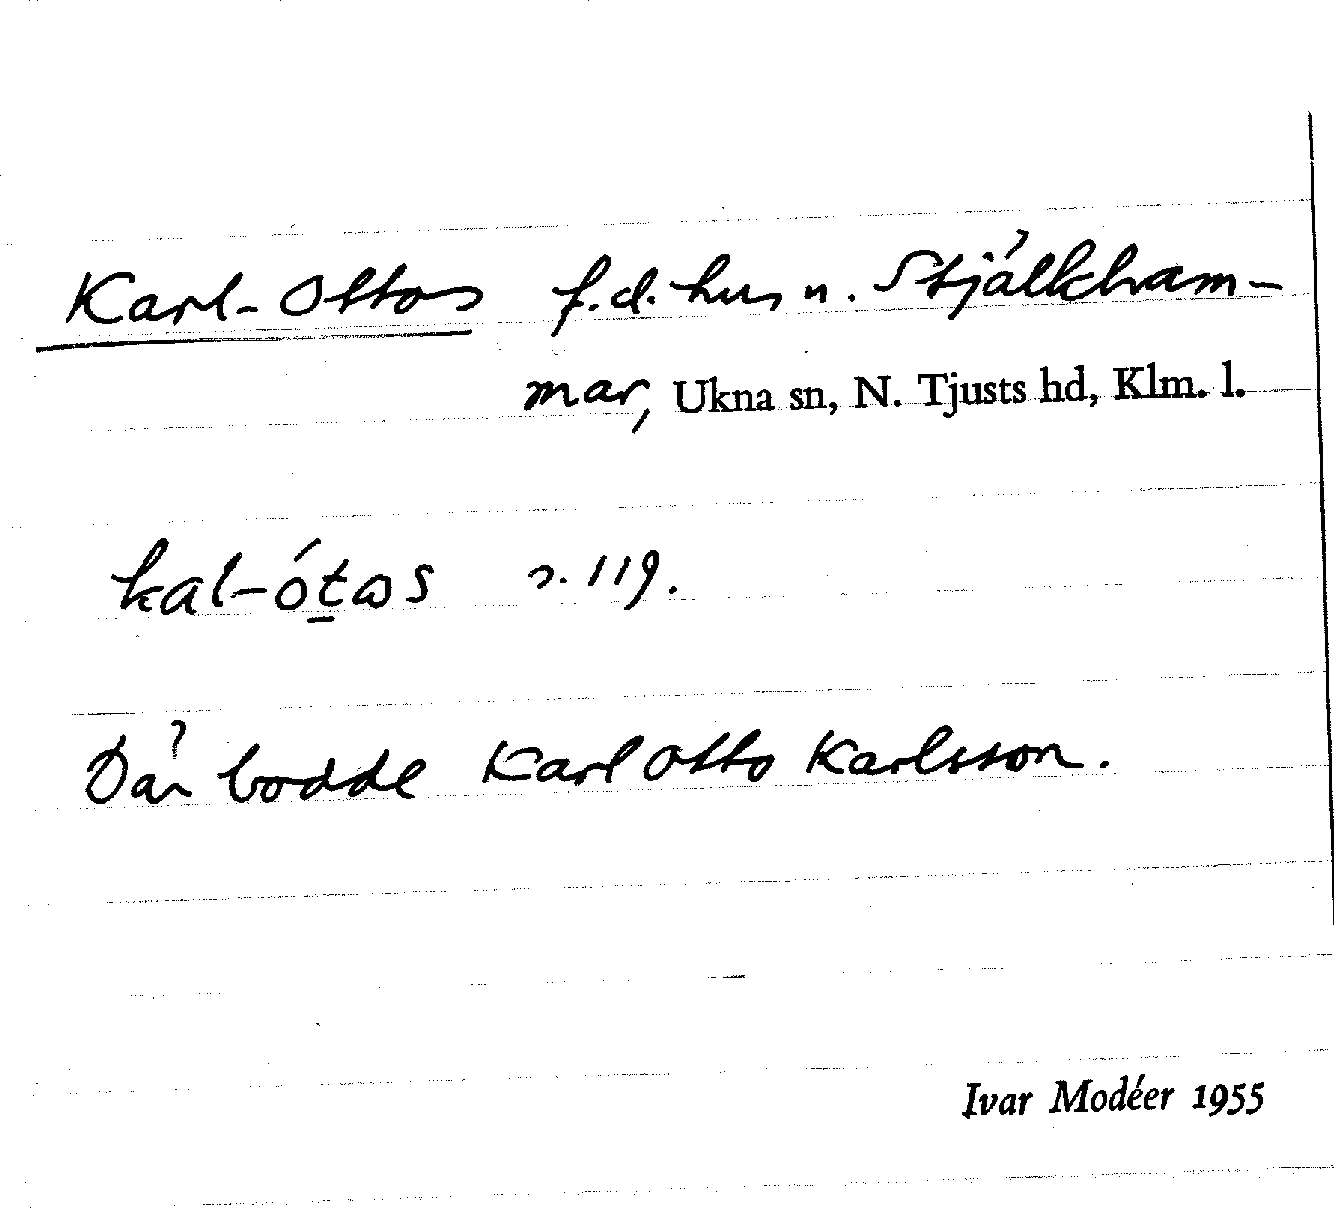 Karl-Ottos f.d. hus u. Stjälkham-
mar, Ukna sn, N. Tjusts hd, Klm. l.
kal-ótωs s. 119.
Där bodde Karl Otto Karlsson.
Ivar Modéer 1955